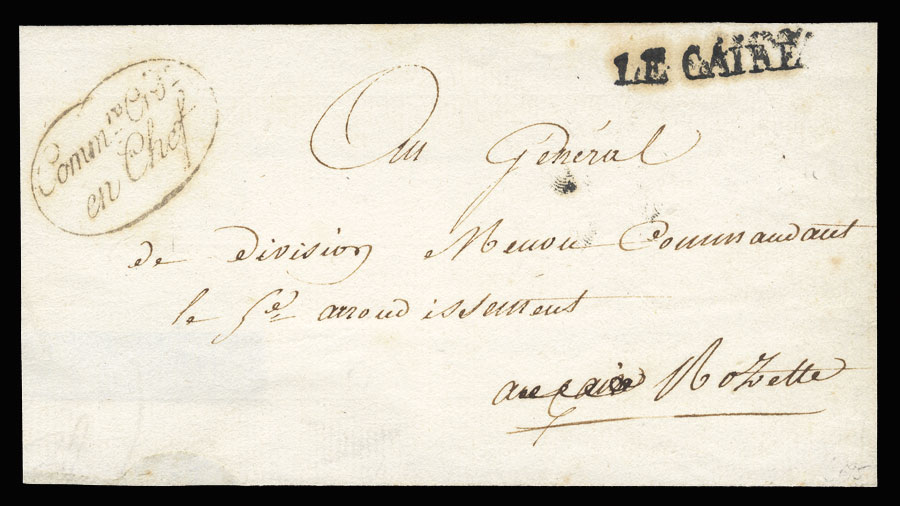 LE CAIRE
Comm.re Ord.r
en Chef
Au Général
de division Menou Commandant
le 5e arrondissement
Rozette